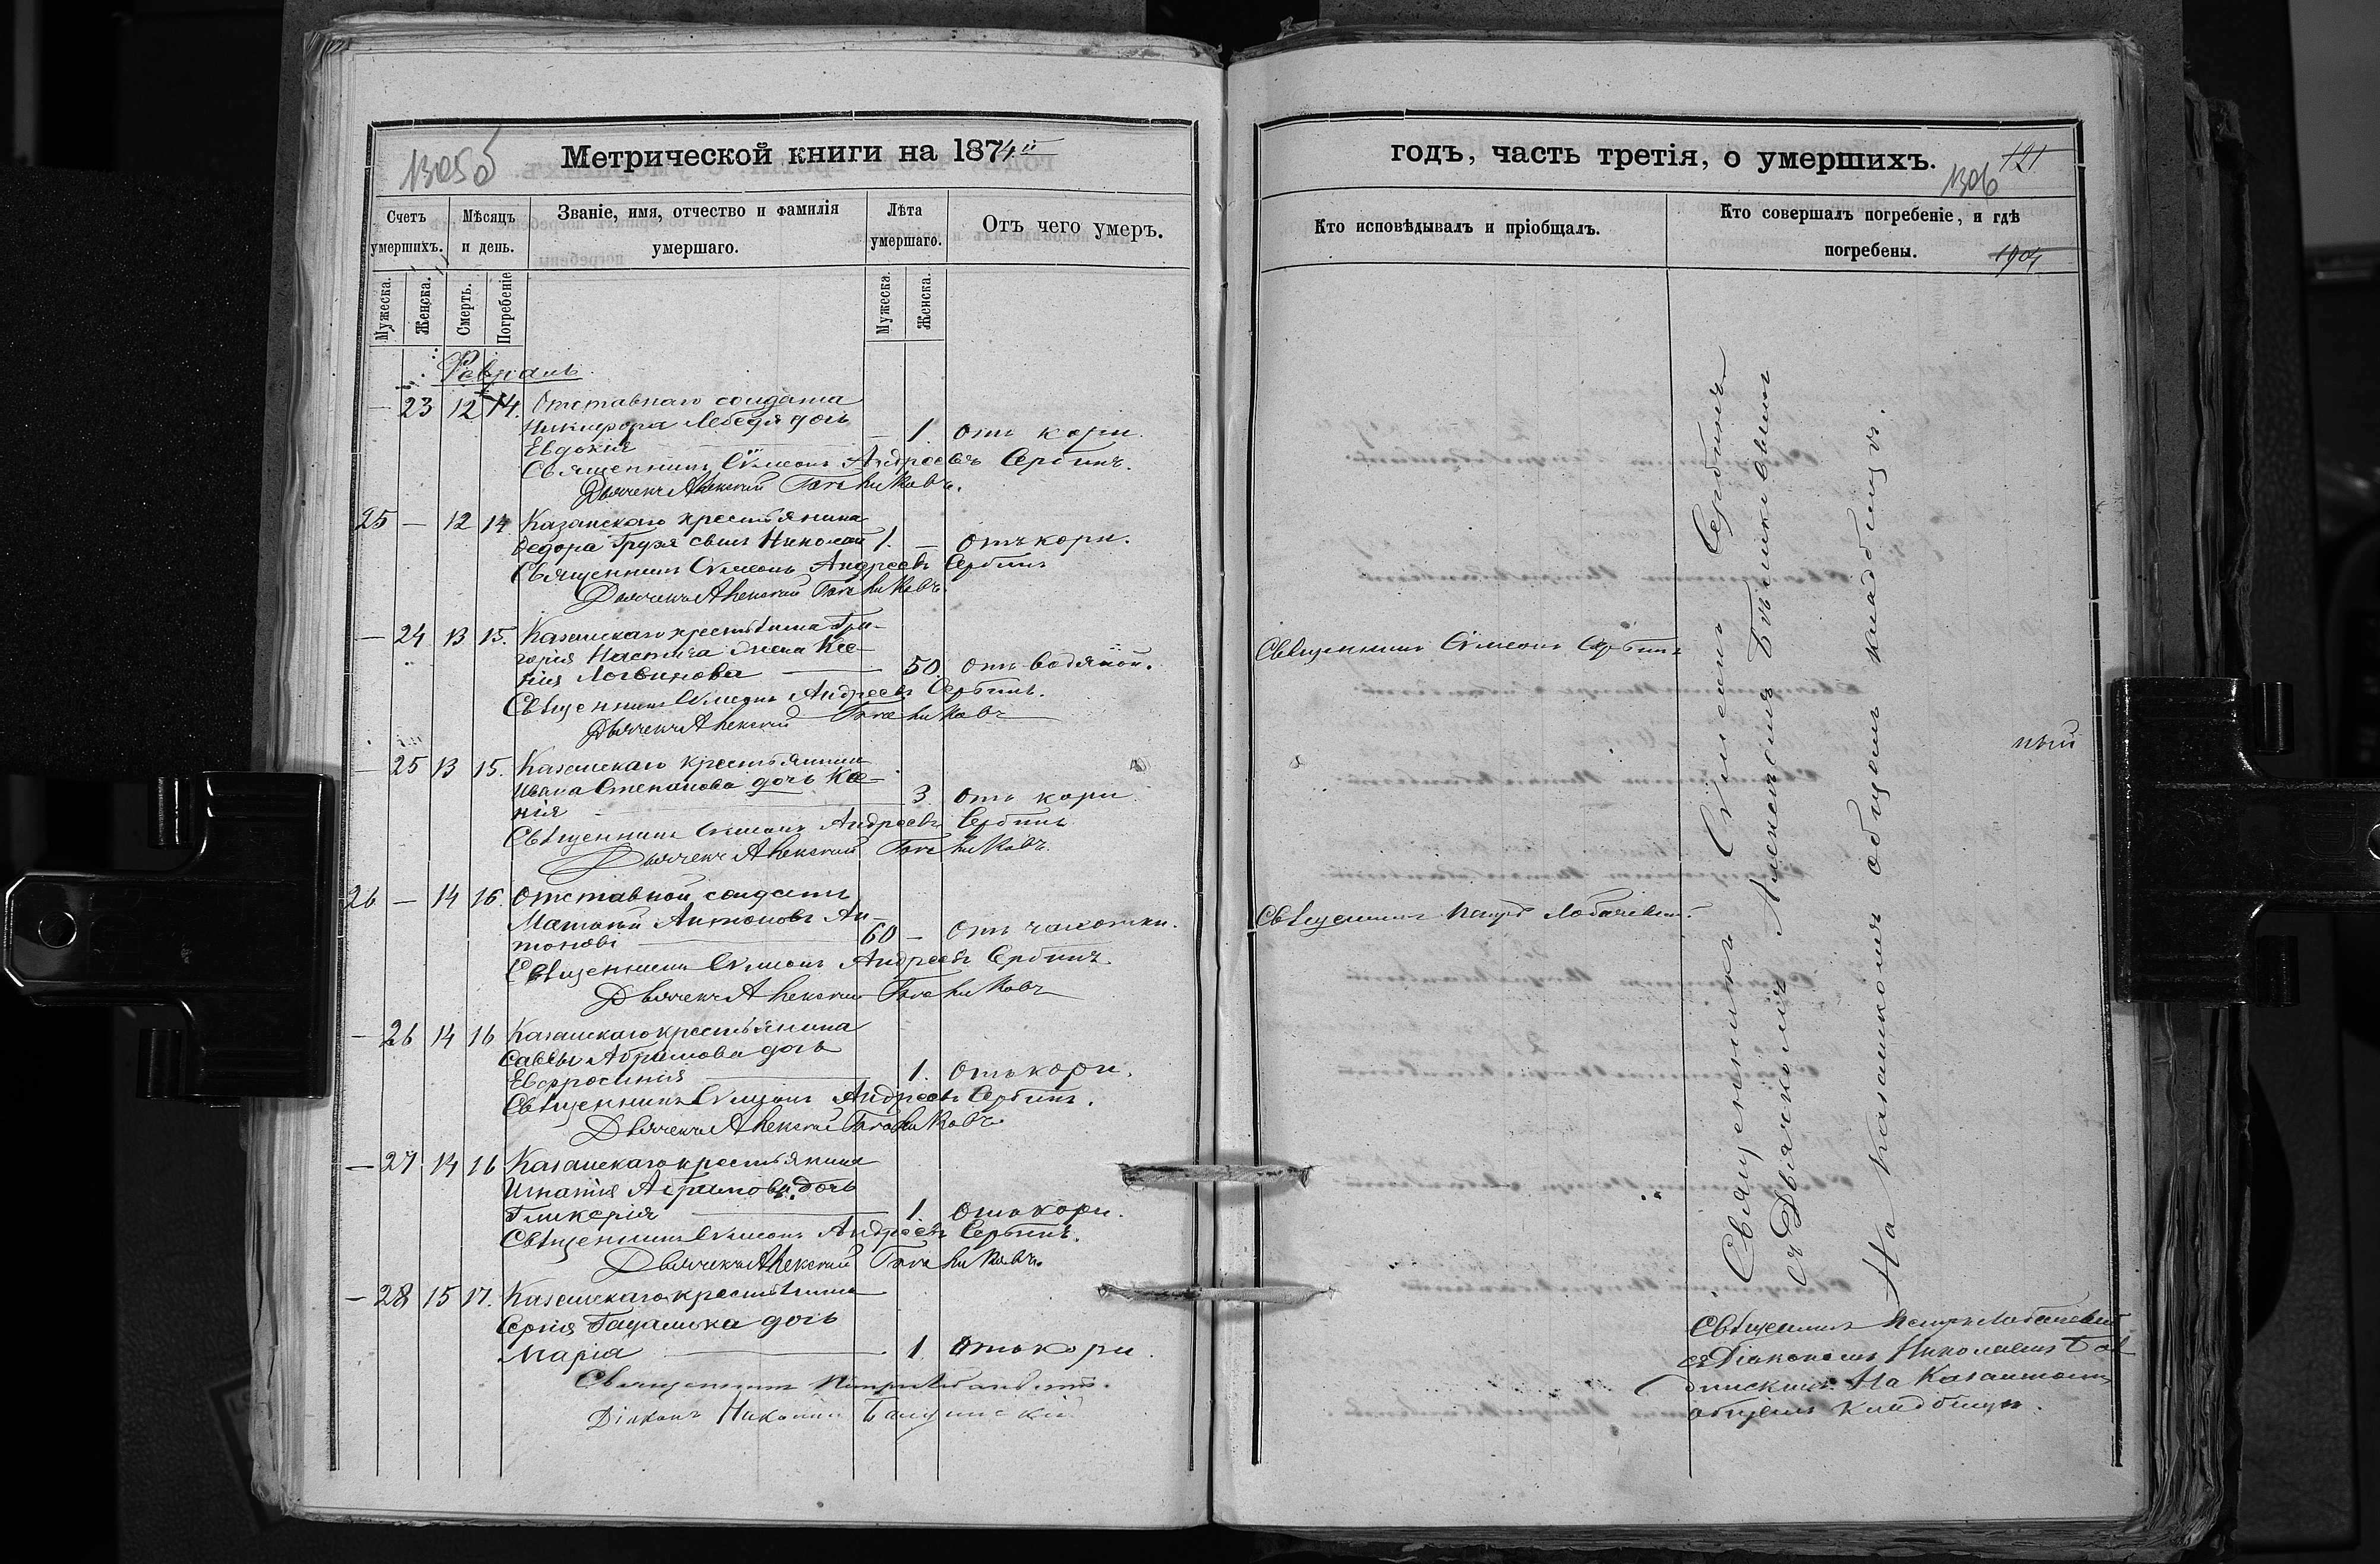 Метрической книги на 1874й
1305б
Счетъ умершихъ.
Мѣсяцъ и день.
Званіе, имя, отчество и фамилія умершаго.
Лѣта умершаго.
Отъ чего умеръ.
Мужеска.
Женска.
Смерть.
Погребеніе
Мужеска.
Женска.
Февраль
— 23 12 14. Отставнаго солдата
Никифора Лебедя дочь
Евдокія — 1. Отъ кори.
Священникъ Сѵмеонъ Андреевъ Сербинъ.
Дьячекъ Алексѣй
25 — 12 14 Казанскаго крестьянина
Федора Грузя сынъ Николай 1. — Отъ кори.
Священникъ Сѵмеонъ Андреевъ Сербинъ
Дьячекъ Алексѣй
— 24 13 15. Казанскаго крестьянина Гри-
горія жена Ксе-
нія Логвинова — 50. Отъ водяной.
Священникъ Сѵмеонъ Андреевъ Сербинъ.
Дьячекъ Алексѣй
— 25 13 15. Казанскаго крестьянина
Ивана Степанова дочь Ксе-
нія — 3. Отъ кори
Священникъ Сѵмеонъ Андреевъ Сербинъ
Дьячекъ Алексѣй
26 — 14 16. Отставной солдатъ
Матвѣй Антоновъ Ан-
тоновъ 60 — Отъ чахотки.
Священникъ Сѵмеонъ Андреевъ Сербинъ.
Дьячекъ Алексѣй
— 26 14 16 Казанскаго крестьянина
Саввы Абрамова дочь
Евфросинія — 1. Отъ кори.
Священникъ Сѵмеонъ Андреевъ Сербинъ.
Дьячекъ Алексѣй
— 27 14 16 Казанскаго крестьянина
Игнатія дочь
Гликерія — 1. Отъ кори.
Священникъ Сѵмеонъ Андреевъ Сербинъ.
Дьячекъ Алексѣй
— 28 15 17. Казанскаго крестьянина
Сергія дочь
Марія — 1. Отъ кори.
Священникъ Петръ
Діаконъ Николай
годъ, часть третія, о умершихъ.
121
1306
Кто исповѣдывалъ и пріобщалъ.
Кто совершалъ погребеніе, и гдѣ погребены.
Священникъ Сѵмеонъ Сербинъ
Священникъ Петръ Лобачевскій.
Священникъ Сѵмеонъ Сербинъ
съ Дьячкомъ Алексѣемъ
На Казанскомъ общемъ кладбищѣ.
Священникъ Петръ Лобачевскій
съ Діакономъ Николаемъ
На Казанскомъ
общемъ кладбищѣ.